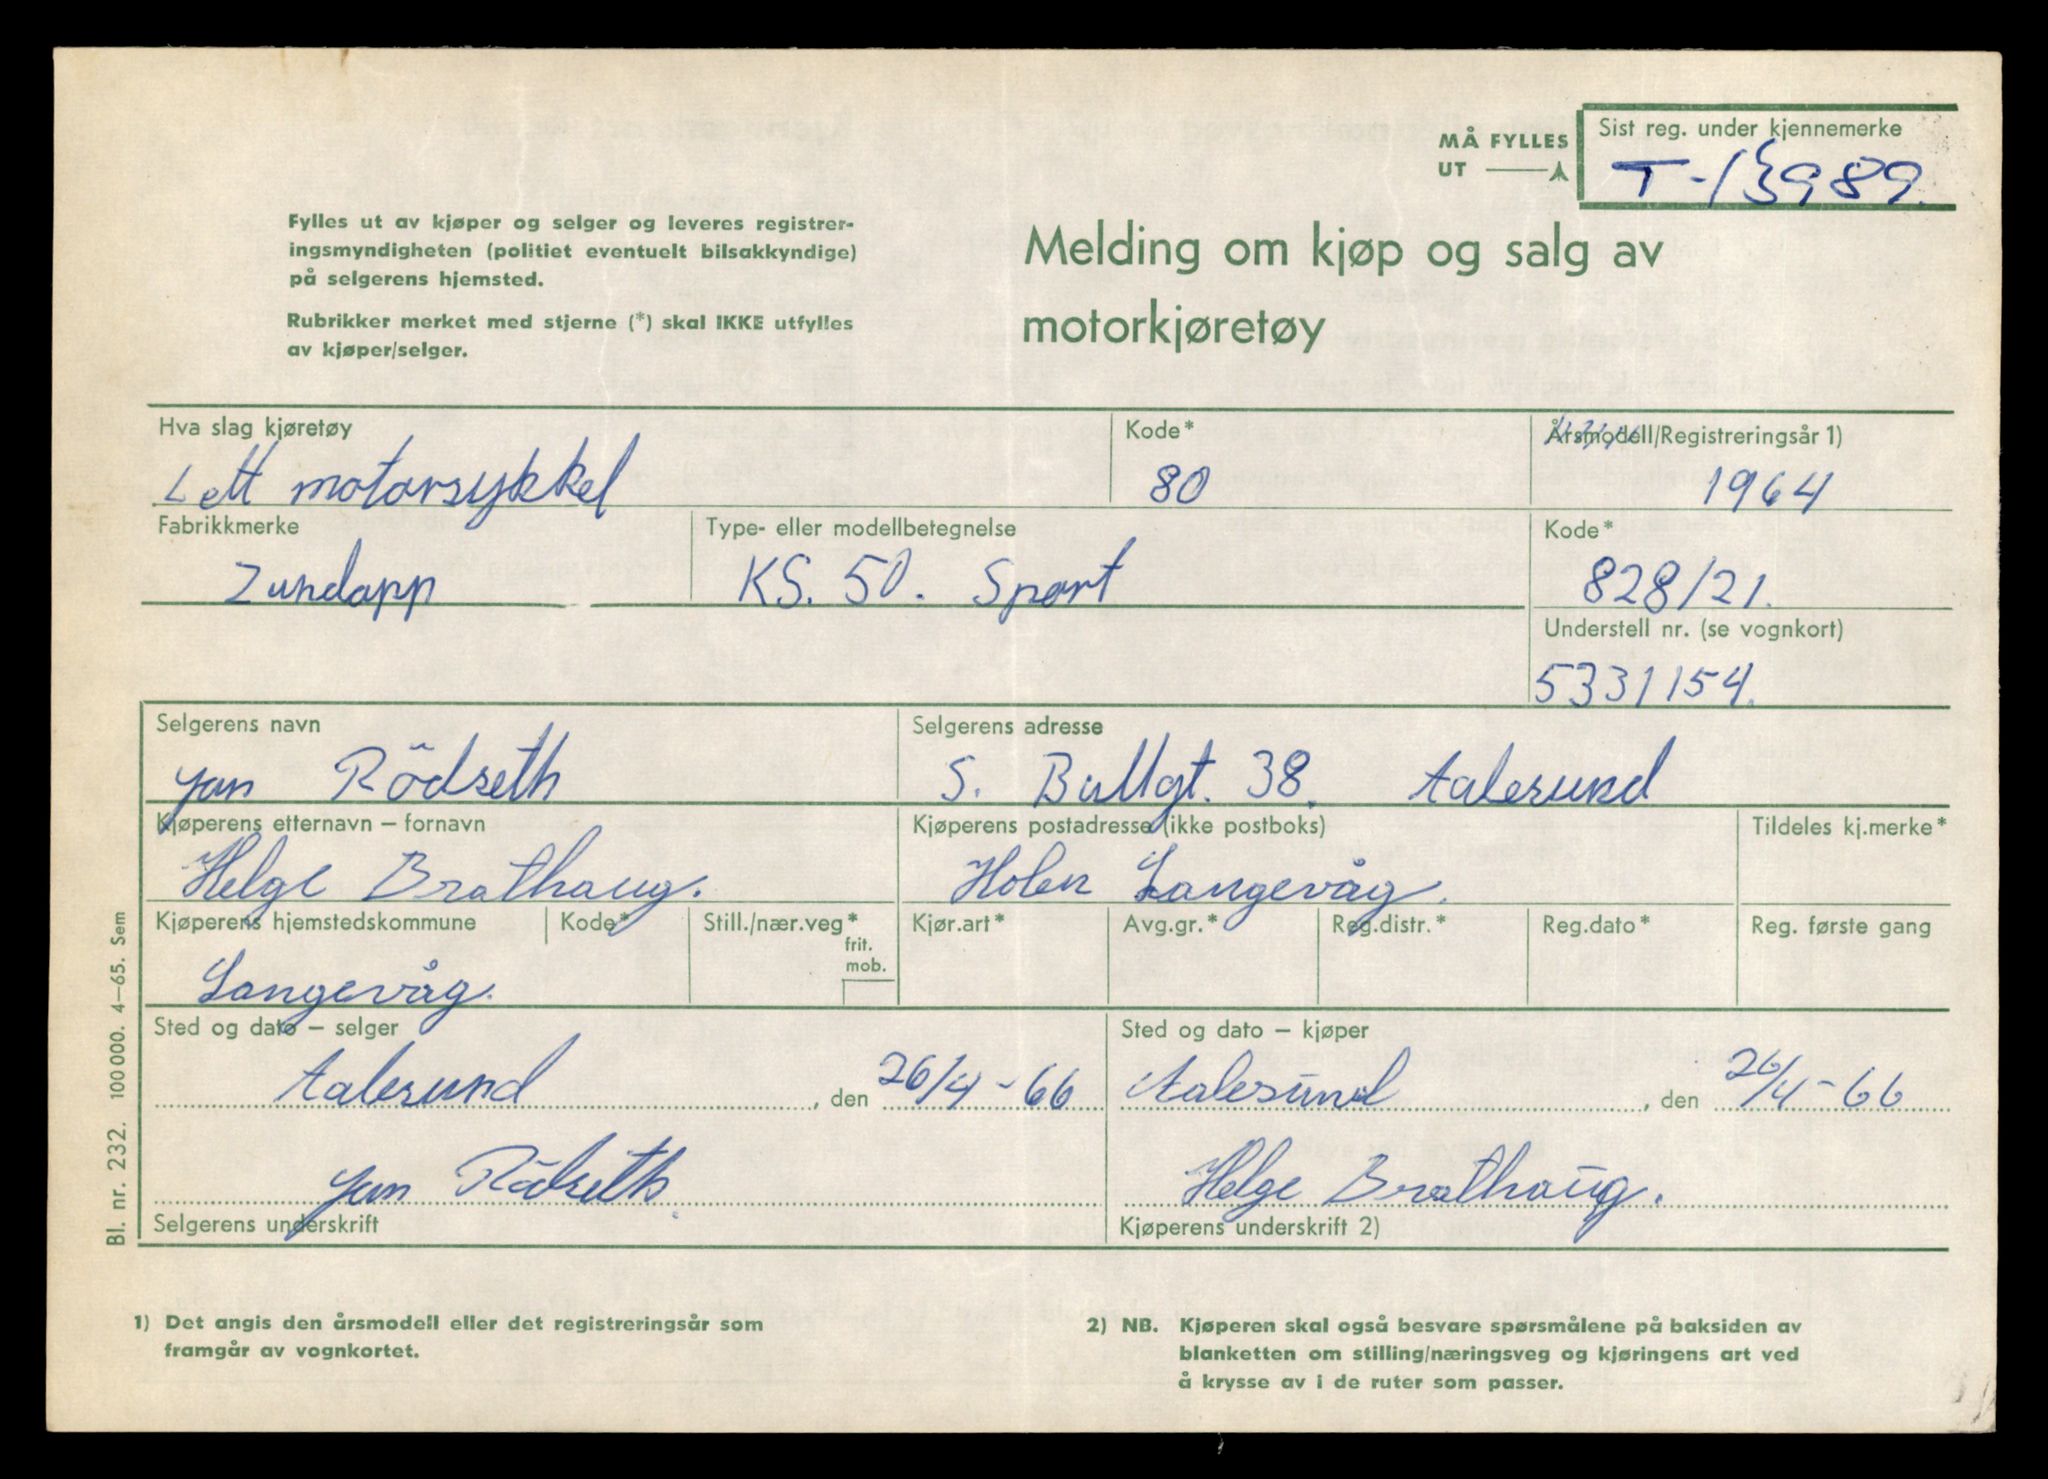 MÅ FYLLES
UT
Sist reg. under kjennemerke
T-13989.
Fylles ut av kjøper og selger og leveres registrer-
ingsmyndigheten (politiet eventuelt bilsakkyndige)
på selgerens hjemsted.
Rubrikker merket med stjerne (*) skal IKKE utfylles
av kjøper/selger.
Melding om kjøp og salg av
motorkjøretøy
Hva slag kjøretøy
Lett motorsykkel
Kode*
80
Årsmodell/Registreringsår 1)
1964
Fabrikkmerke
Zundapp
Type- eller modellbetegnelse
KS. 50. Sport
Kode*
828/21.
Understell nr. (se vognkort)
5331154.
Selgerens navn
Jan Rödseth
Selgerens adresse
S. Bullgt. 38. Aalesund
Kjøperens etternavn – fornavn
Helge Brathaug.
Kjøperens postadresse (ikke postboks)
Holen Langevåg.
Tildeles kj.merke*
Kjøperens hjemstedskommune
Langevåg.
Kode*
Still./nær.veg*
frit.
mob.
Kjør.art*
Avg.gr.*
Reg.distr.*
Reg.dato*
Reg. første gang
Sted og dato – selger
Aalesund, den 26/4-66
Jan Rödseth
Selgerens underskrift
Sted og dato – kjøper
Aalesund, den 26/4-66
Helge Brathaug.
Kjøperens underskrift 2)
Bl. nr. 232. 100 000. 4–65. Sem
1) Det angis den årsmodell eller det registreringsår som
framgår av vognkortet.
2) NB. Kjøperen skal også besvare spørsmålene på baksiden av
blanketten om stilling/næringsveg og kjøringens art ved
å krysse av i de ruter som passer.